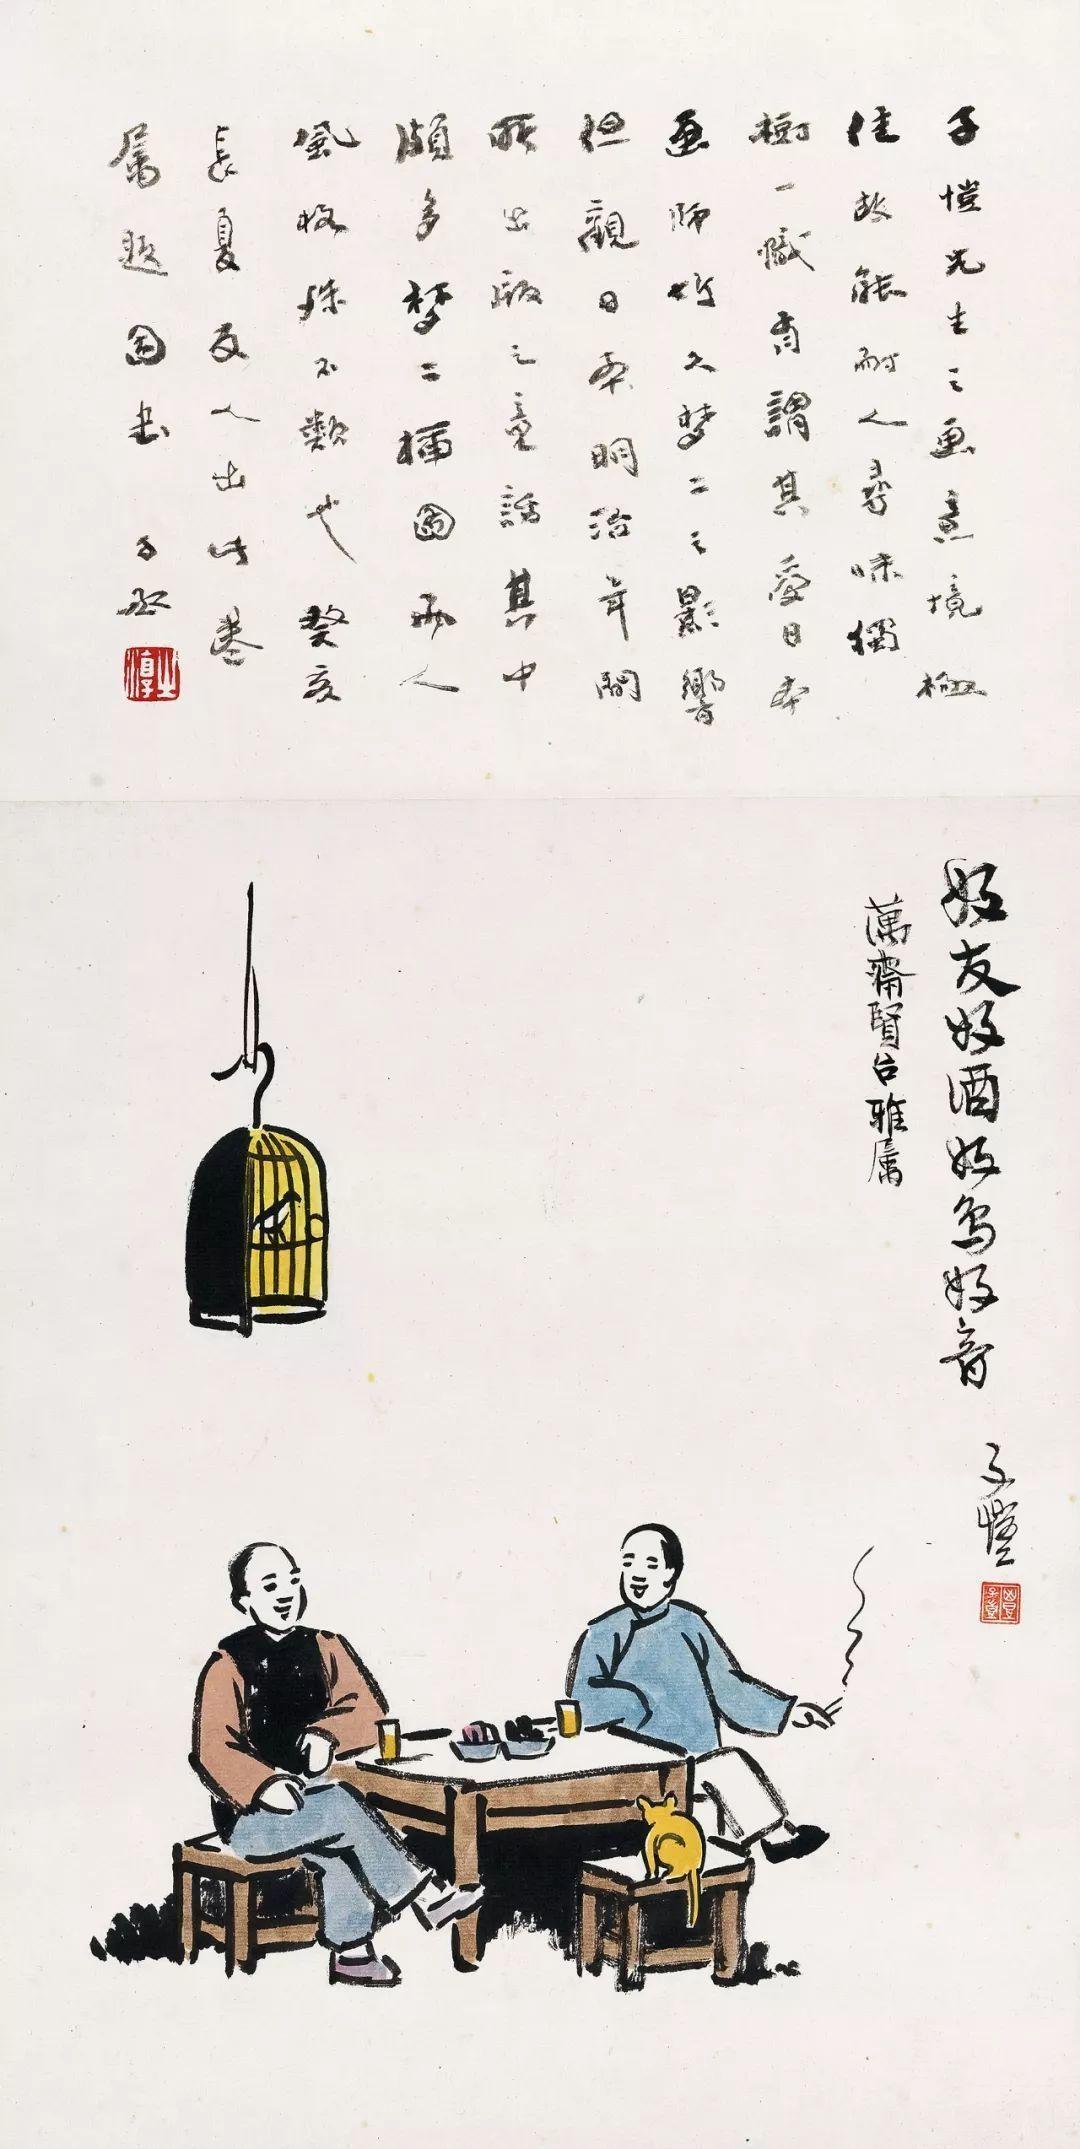 子愷先生之畫意境極
佳故能耐人尋味獨
樹一幟有謂其受日本
畫師竹久夢二之影響
但觀日本明治年間
所出版之童話其中
頗多夢二插圖兩人
風格殊不類也 癸亥
長夏友人出此卷
属題因書
淳之
好友好酒好鳥好音
萬齋賢台雅属
子愷
豐子愷